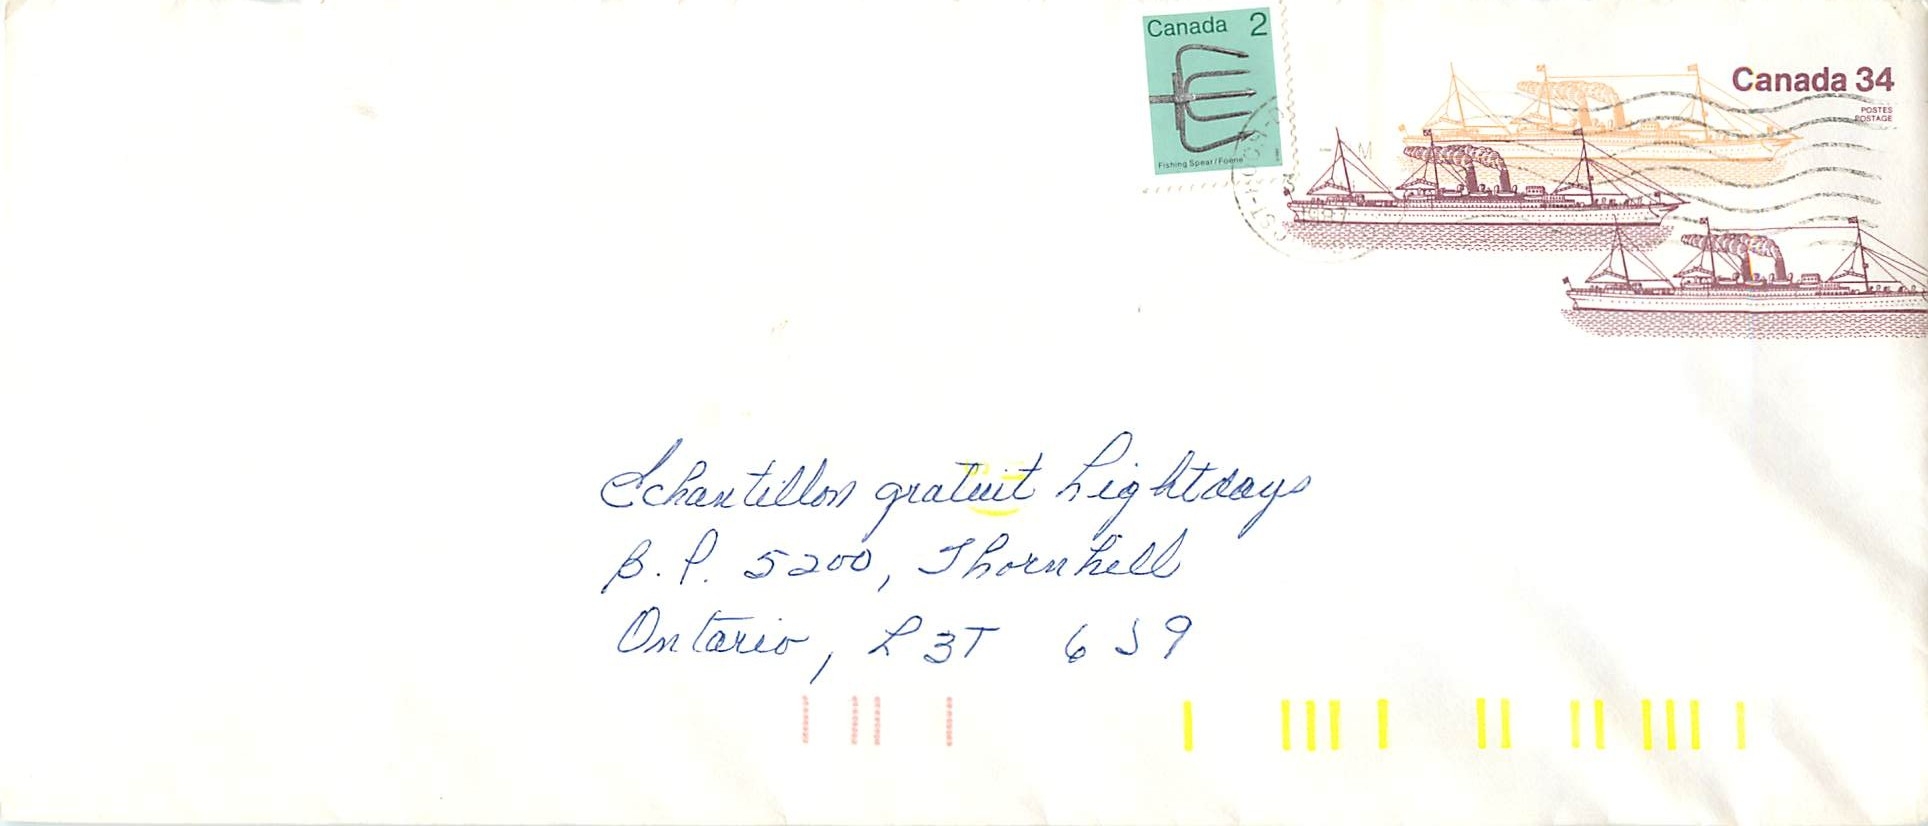 Canada 2
Fishing Spear / Foëne
Canada 34
POSTES
POSTAGE
1987
Echantillon gratuit Lightdays
B.P. 5200, Thornhill
Ontario, L3T 6J9